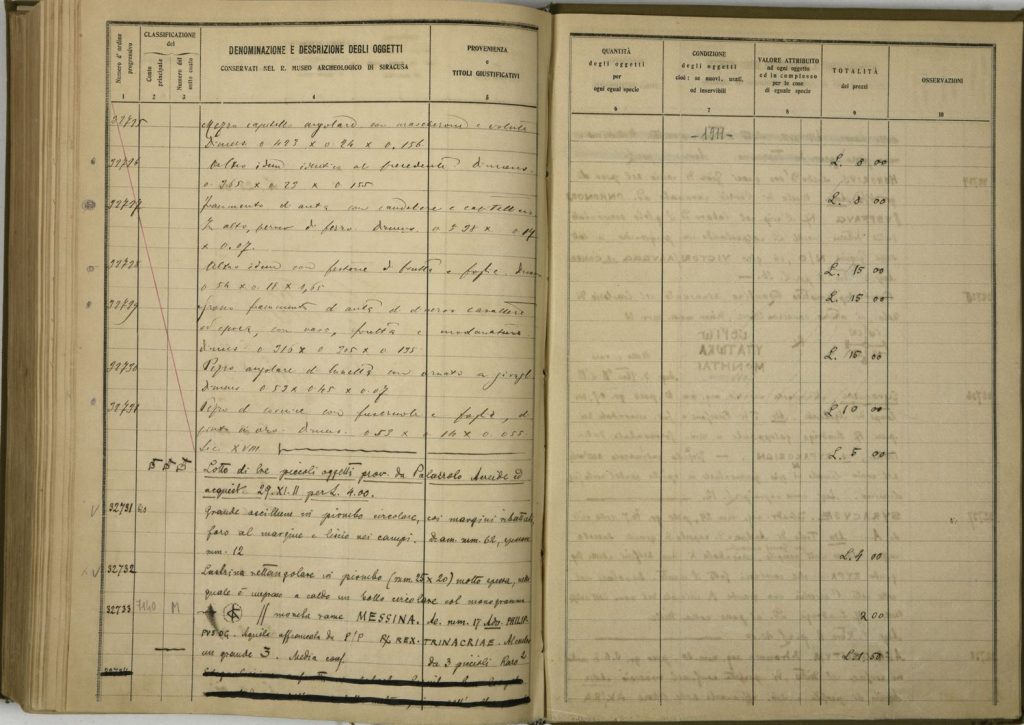 Numero d'ordine progressivo
CLASSIFICAZIONE del
Conto principale
Numero del sotto conto
DENOMINAZIONE E DESCRIZIONE DEGLI OGGETTI
CONSERVATI NEL R. MUSEO ARCHEOLOGICO DI SIRACUSA
PROVENIENZA
e
TITOLI GIUSTIFICATIVI
1 2 3 4 5
32725 Mezzo capitello angolare con mascherone e volute
Dimens. 0.423 x 0.24 x 0.156
32726 Altro idem identico al precedente dimens.
0.365 x 0.23 x 0.155
32727 frammento d'anta con candelore e capitello
alto, perno di ferro. Dimens. 0. 28 x 0.17
x 0.07.
32728 Altro idem con festone di frutta e foglie. Dimens
0.54 x 0.18 x 1,65
32729 grosso frammento d'anta di diverso carattere
ed epoca, con vaso, frutta e modanature
Dimens. 0.316 x 0.305 x 0.195
32730 Pezzo angolare di lunetta con ornato a girali
Dimens 0.53 x 0.45 x 0.07
32731 Pezzo di cornice con fuseruole e foglie,
oro. Dimens. 0.53 x 0.14 x 0.055.
Sec. XVIII
Lotto di tre piccoli oggetti prov. da Palazzolo Acreide ed
acquist. 29.XI.11 per L. 4.00.
32731 Grande oscillum in piombo circolare, coi margini ribattuti,
foro al margine e liscio nei campi. diam. mm. 62, spessore
mm. 12
32732 Lastrina rettangolare in piombo (mm. 25 x 20) molto spessa, nella
quale è impresso a caldo un bollo circolare col monogramma
32733 7140 M // moneta rame MESSINA. di. mm. 17 Adv. PHILIP
Aquila affrontata da P/P R/ REX. TRINACRIAE. Al centro
un grande 3. Media cons. da 3 piccioli Raro 2
32734
QUANTITÀ
degli oggetti
per
ogni egual specie
CONDIZIONE
degli oggetti
cioè: se nuovi, usati,
od inservibili
VALORE ATTRIBUITO
ad ogni oggetto
ed in complesso
per le cose
di eguale specie
TOTALITÀ
dei prezzi
OSSERVAZIONI
6 7 8 9 10
-1911-
L. 8 00
L. 8 00
L. 15 00
L. 15 00
L. 15 00
L. 10 00
L. 5 00
L. 4 00
2 00